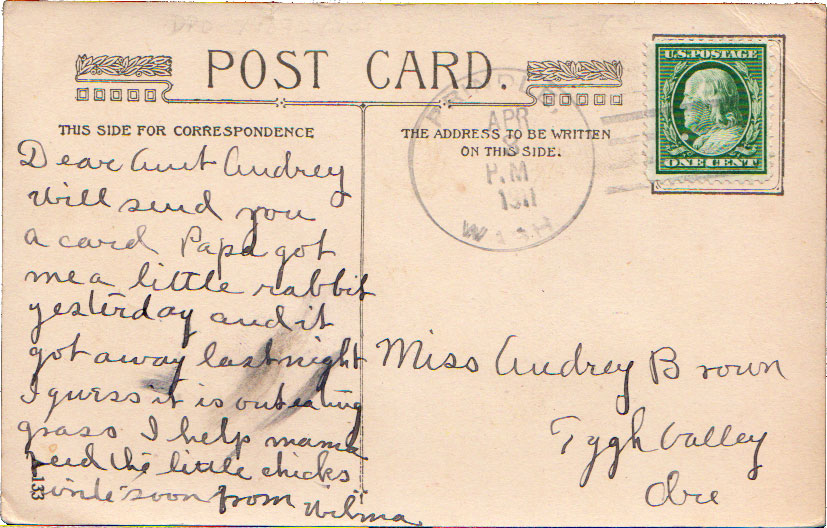 POST CARD.
THIS SIDE FOR CORRESPONDENCE
THE ADDRESS TO BE WRITTEN
ON THIS SIDE.
U.S. POSTAGE
ONE CENT
APR
P.M
1911
WASH
Dear Aunt Audrey
Will send you
a card Papa got
me a little rabbit
yesterday and it
got away last night
I guess it is out eating
grass I help mama
feed the little chicks
write soon from Wilma
133
Miss Audrey Brown
Tygh Valley
Ore